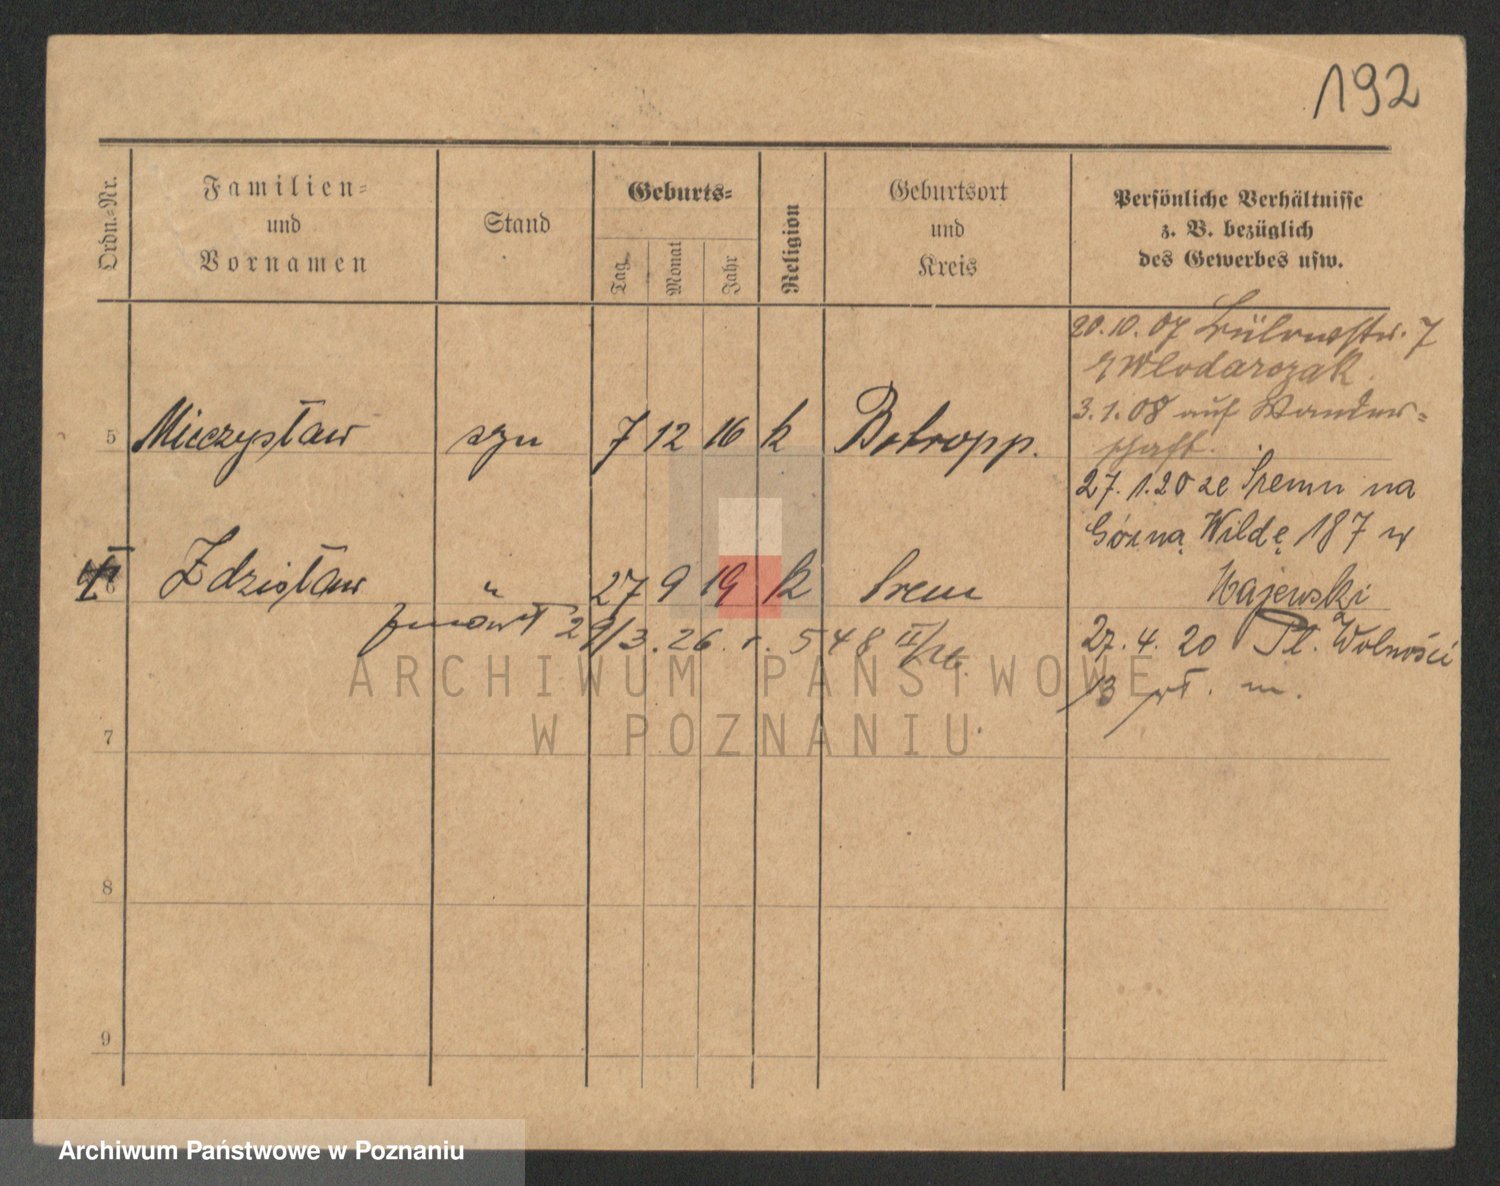 192
Ordn.-Nr.
Familien-
und
Vornamen
Stand
Geburts-
Tag
Monat
Jahr
Religion
Geburtsort
und
Kreis
Persönliche Verhältnisse
z. B. bezüglich
des Gewerbes usw.
20.10.07 Bülowstr. 7
Wlodarczak
3.1.08 auf Wander-
schaft.
5 Mieczysław syn 7 12 16 k Botropp.
27.1.20 ze Śremu na
Górną Wildę 187 w
Majewski
6 Zdzisław " 27 9 19 k Srem
zmarł 29/3.26. r. 548 II/26
27.4.20 Pl. Wolności
13 m.
7
8
9
ARCHIWUM PAŃSTWOWE
W POZNANIU
Archiwum Państwowe w Poznaniu